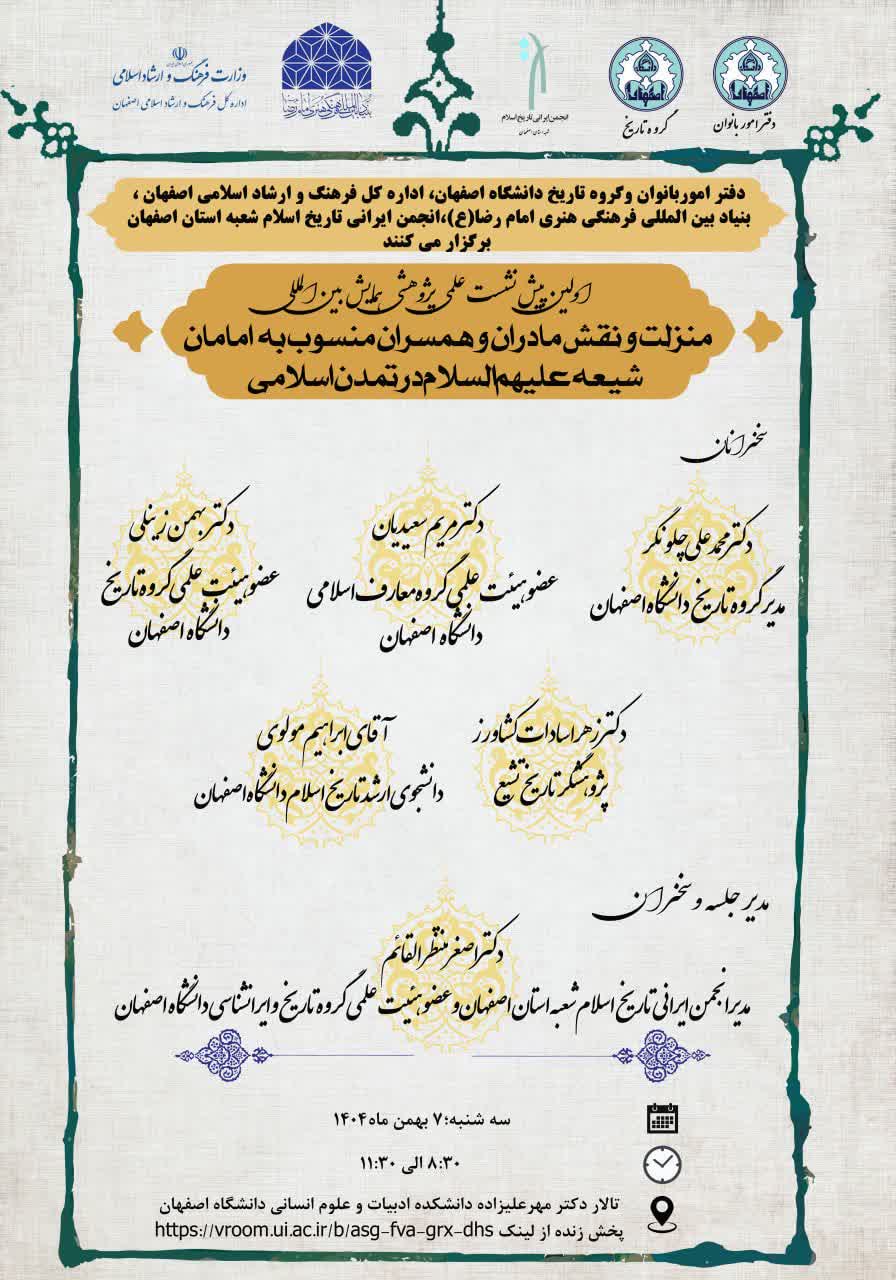 وزارت فرهنگ و ارشاد اسلامی
اداره کل فرهنگ و ارشاد اسلامی اصفهان
انجمن ایرانی تاریخ اسلام
شعبه استان اصفهان
گروه تاریخ
دفتر امور بانوان
دفتر اموربانوان وگروه تاریخ دانشگاه اصفهان، اداره کل فرهنگ و ارشاد اسلامی اصفهان ،
بنیاد بین المللی فرهنگی هنری امام رضا(ع)،انجمن ایرانی تاریخ اسلام شعبه استان اصفهان
برگزار می کنند
اولین پیش نشست علمی پژوهشی همایش بین المللی
منزلت و نقش مادران و همسران منسوب به امامان
شیعه علیهم السلام در تمدن اسلامی
سخنرانان
دکتر محمدعلی چلونگر
مدیر گروه تاریخ دانشگاه اصفهان
دکتر مریم سعیدیان
عضو هیئت علمی گروه معارف اسلامی
دانشگاه اصفهان
دکتر بهمن زینلی
عضو هیئت علمی گروه تاریخ
دانشگاه اصفهان
دکتر زهرا سادات کشاورز
پژوهشگر تاریخ تشیع
آقای ابراهیم مولوی
دانشجوی ارشد تاریخ اسلام دانشگاه اصفهان
مدیر جلسه و سخنران
دکتر اصغر منتظرالقائم
مدیر انجمن ایرانی تاریخ اسلام شعبه استان اصفهان و عضو هیئت علمی گروه تاریخ و ایرانشناسی دانشگاه اصفهان
سه شنبه؛۷ بهمن ماه۱۴۰۴
۸:۳۰ الی ۱۱:۳۰
تالار دکتر مهرعلیزاده دانشکده ادبیات و علوم انسانی دانشگاه اصفهان
پخش زنده از لینک https://vroom.ui.ac.ir/b/asg-fva-grx-dhs